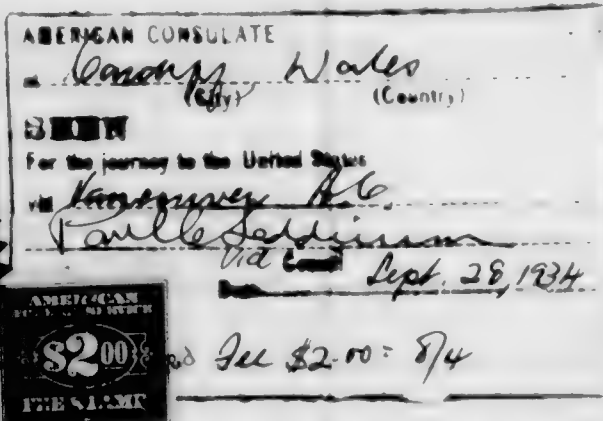 AMERICAN CONSULATE
at Cardiff, Wales
(City) (Country)
SEEN
For the journey to the United States
via Vancouver B.C.
Paul C.
Vice Consul
Date Sept. 28, 1934
AMERICAN
FOREIGN SERVICE
$2.00
FEE STAMP
Fee $2.00 = 8/4